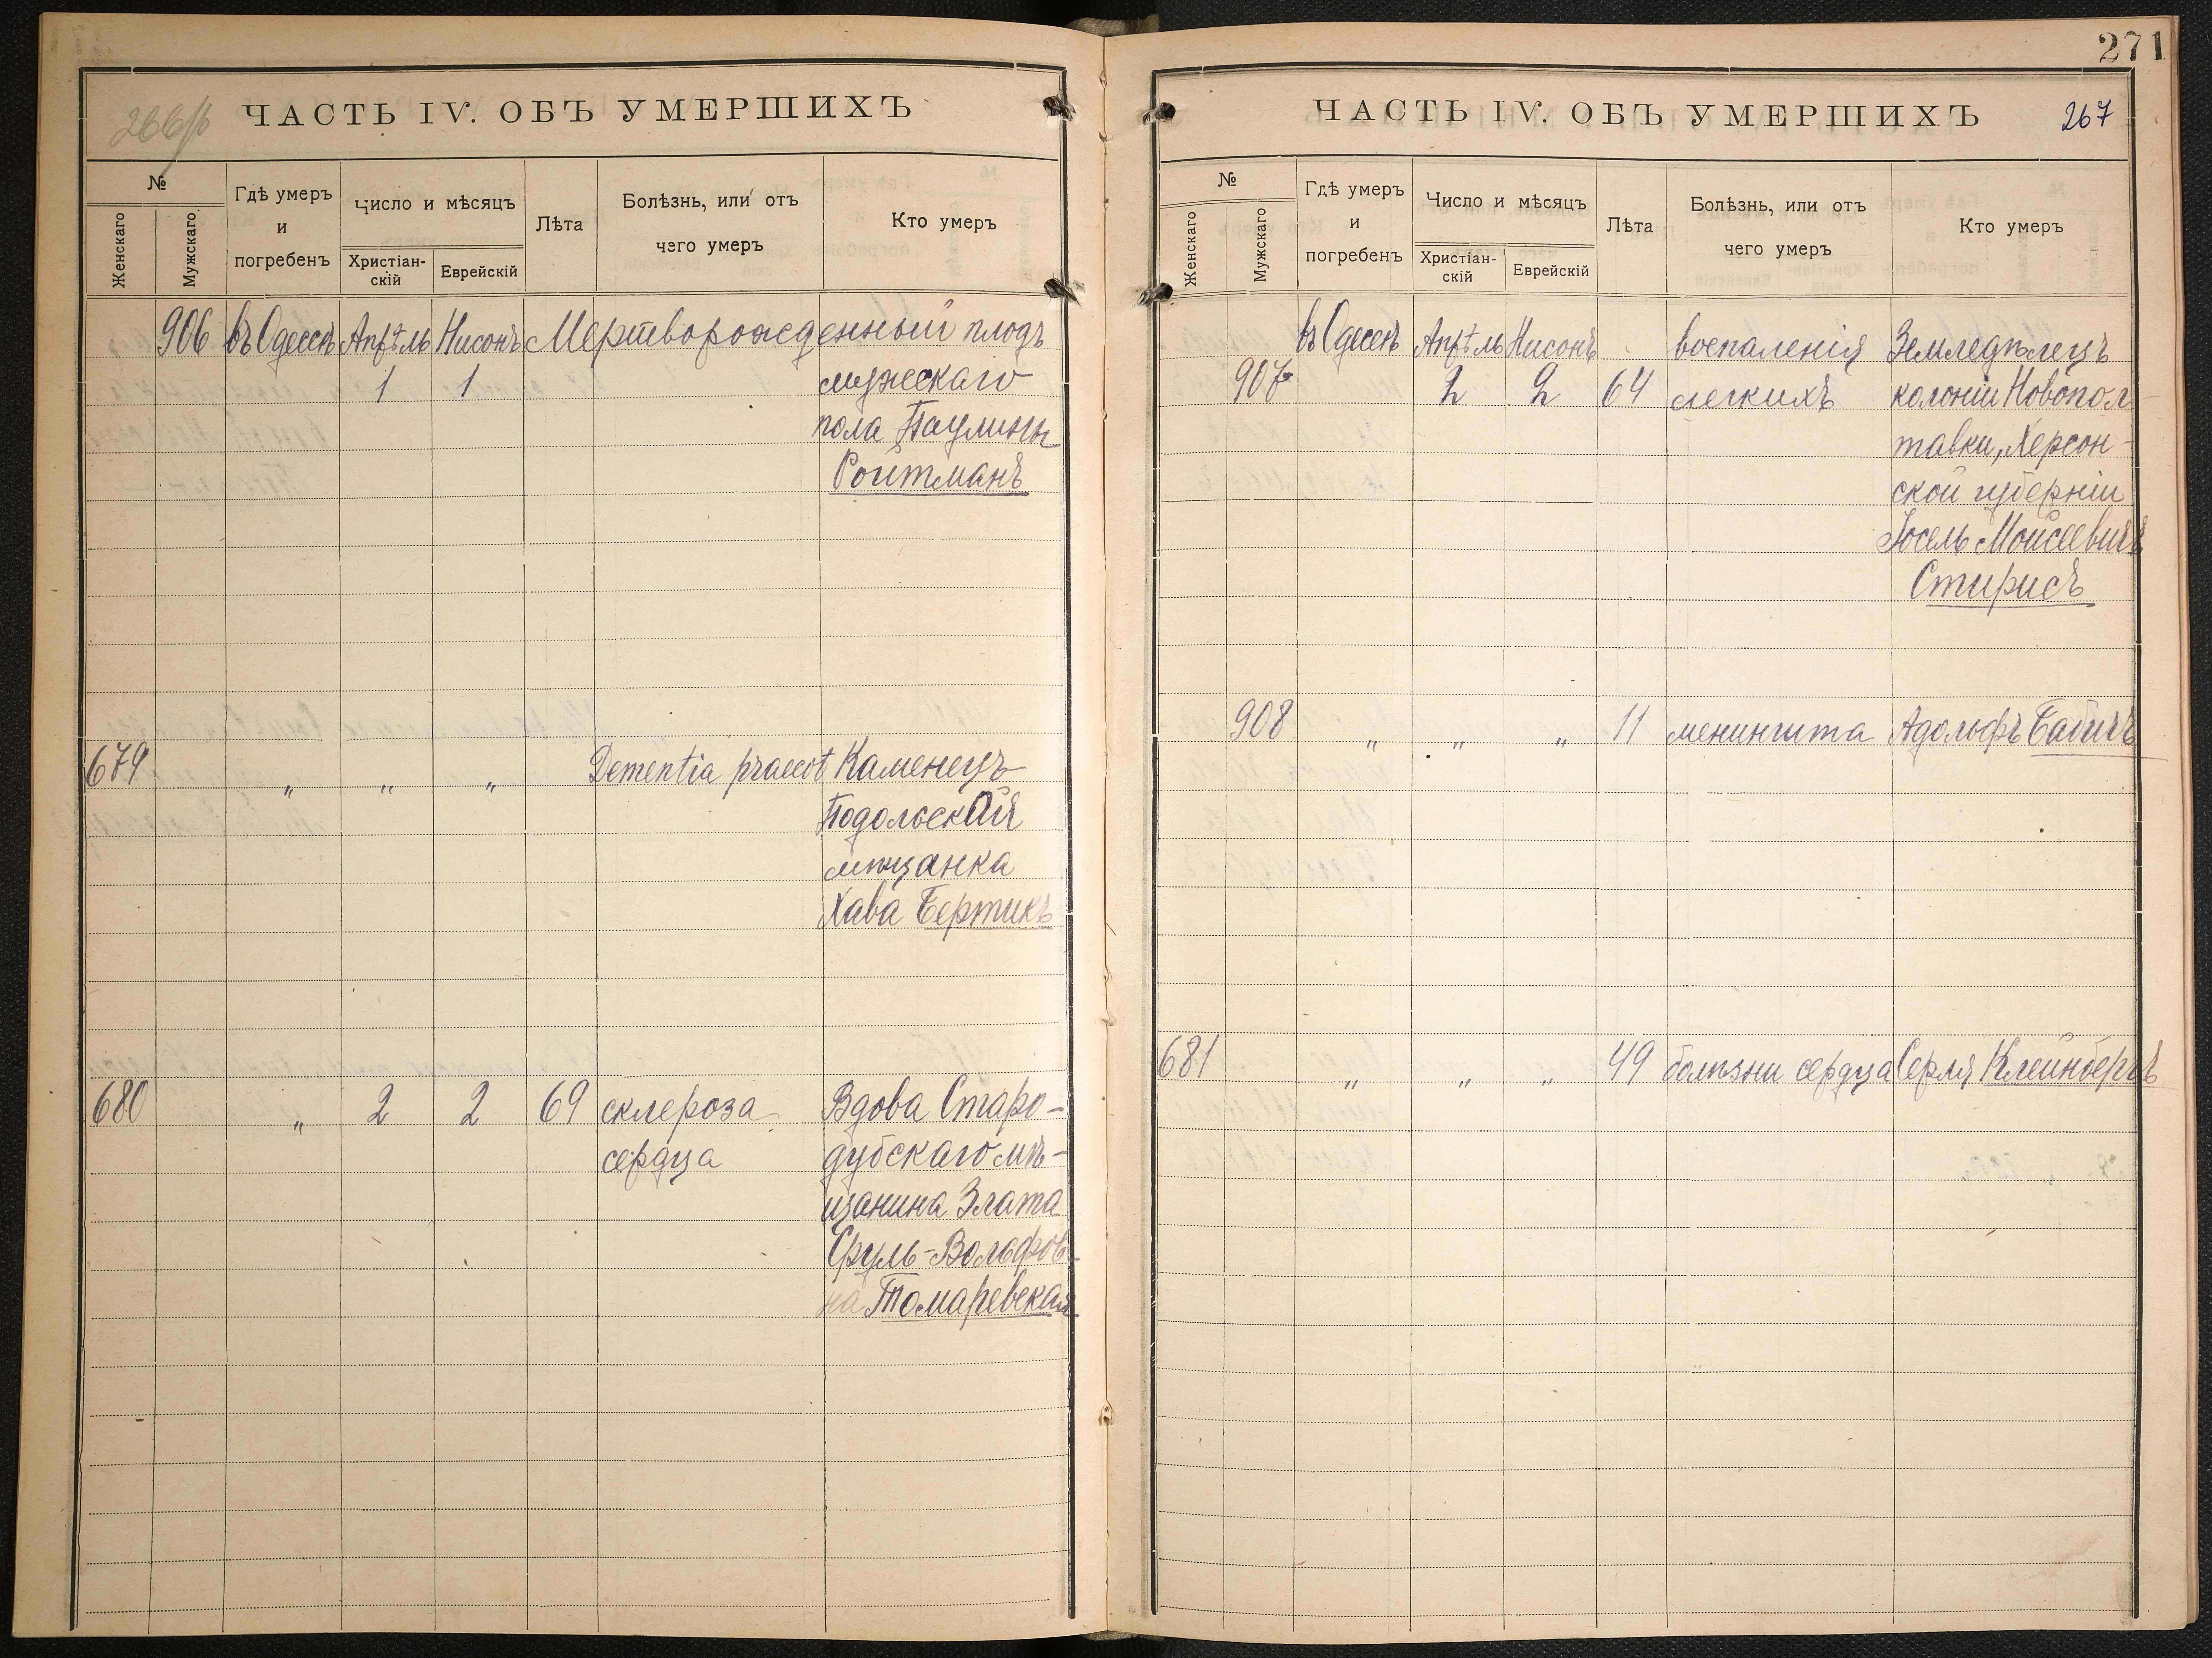 266/б ЧАСТЬ IV. ОБЪ УМЕРШИХЪ
№
Женскаго
Мужскаго
Гдѣ умеръ
и
погребенъ
Число и мѣсяцъ
Христіан-
скій
Еврейскій
Лѣта
Болѣзнь, или отъ
чего умеръ
Кто умеръ
906 въ Одессѣ Апрѣль Нисонъ Мертворожденный плодъ
1 1 мужескаго
пола Паулины
Ройтманъ
679 " " " Dementia praecot Каменецъ-
Подольская
мѣщанка
Хава Бертикъ
680 " 2 2 69 склероза Вдова Старо-
сердца дубскаго мѣ-
щанина Злата
Сруль-Вольфов-
на Томаревская
271
ЧАСТЬ IV. ОБЪ УМЕРШИХЪ 267
№
Женскаго
Мужскаго
Гдѣ умеръ
и
погребенъ
Число и мѣсяцъ
Христіан-
скій
Еврейскій
Лѣта
Болѣзнь, или отъ
чего умеръ
Кто умеръ
въ Одессѣ Апрѣль Нисонъ воспаленія Земледѣлецъ
907 2 2 64 легкихъ колоніи Новопол-
тавки, Херсон-
ской губерніи
Іосель Моисеевичъ
Стирисъ
908 " " " 11 менингита Адольфъ Бабичъ
681 " " " 49 болѣзни сердца Серля Клейнбергъ